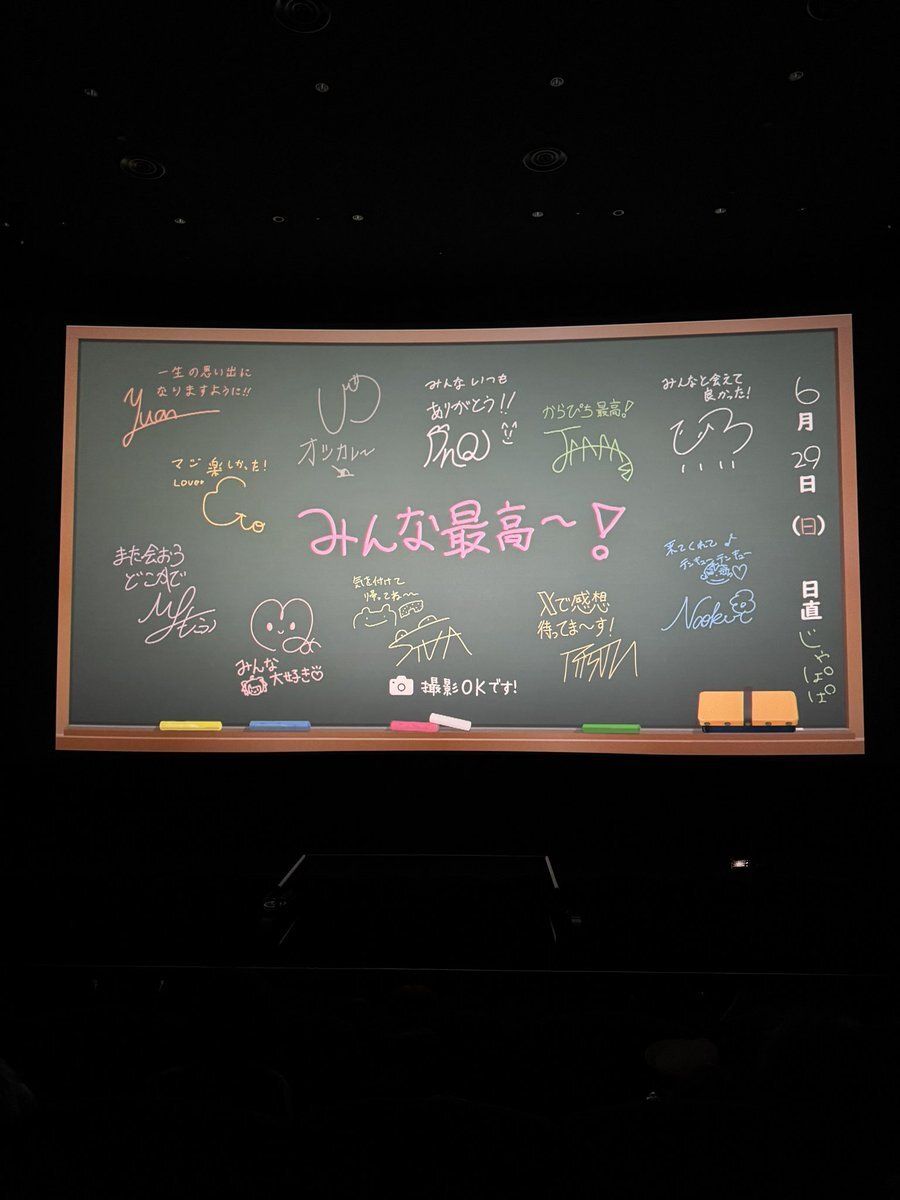 一生の思い出に
なりますように!!
Yuan
オッカレ〜
みんないつも
ありがとう!!
からぴち最高!
みんなと会えて
良かった!
マジ楽しかった!
Lover
みんな最高〜!
また会おう
どこかで
みんな
大好き♡
気を付けて
帰ってね〜
撮影OKです!
Xで感想
待ってま〜す!
来てくれて♪
テンキューテンキュー
Naokiri
6月29日(日)
日直
じゃぱぱ